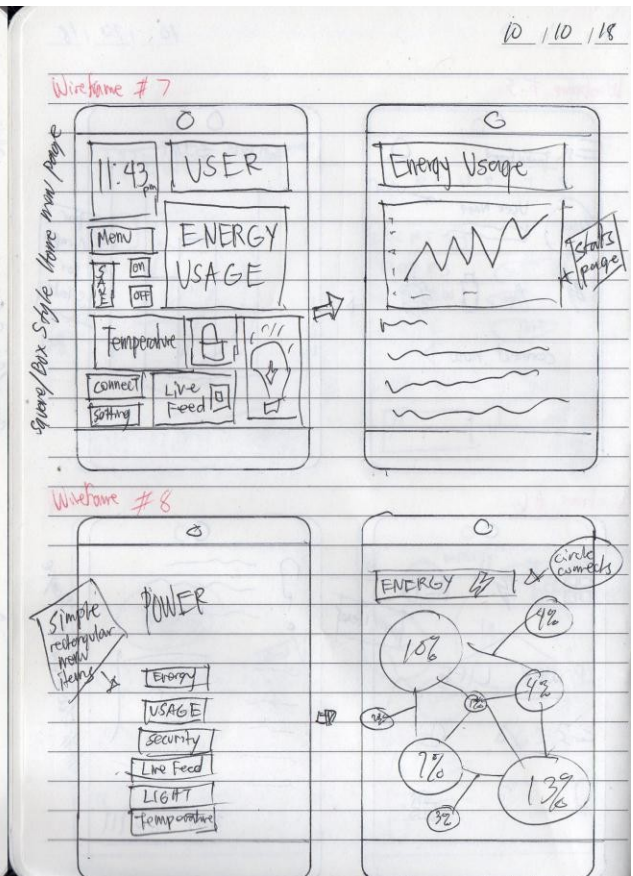 10 / 10 / 18
Wireframe # 7
Square/Box Style Home menu page
11:43 pm
USER
Menu
ENERGY
USAGE
SAVE
ON
OFF
Temperature
connect
Setting
Live
Feed
Energy Usage
Stats
page
Wireframe # 8
Simple
rectangular
menu
items
POWER
Energy
USAGE
Security
Live Feed
LIGHT
Temperature
circle
connects
ENERGY
10%
4%
4%
7%
13%
3%